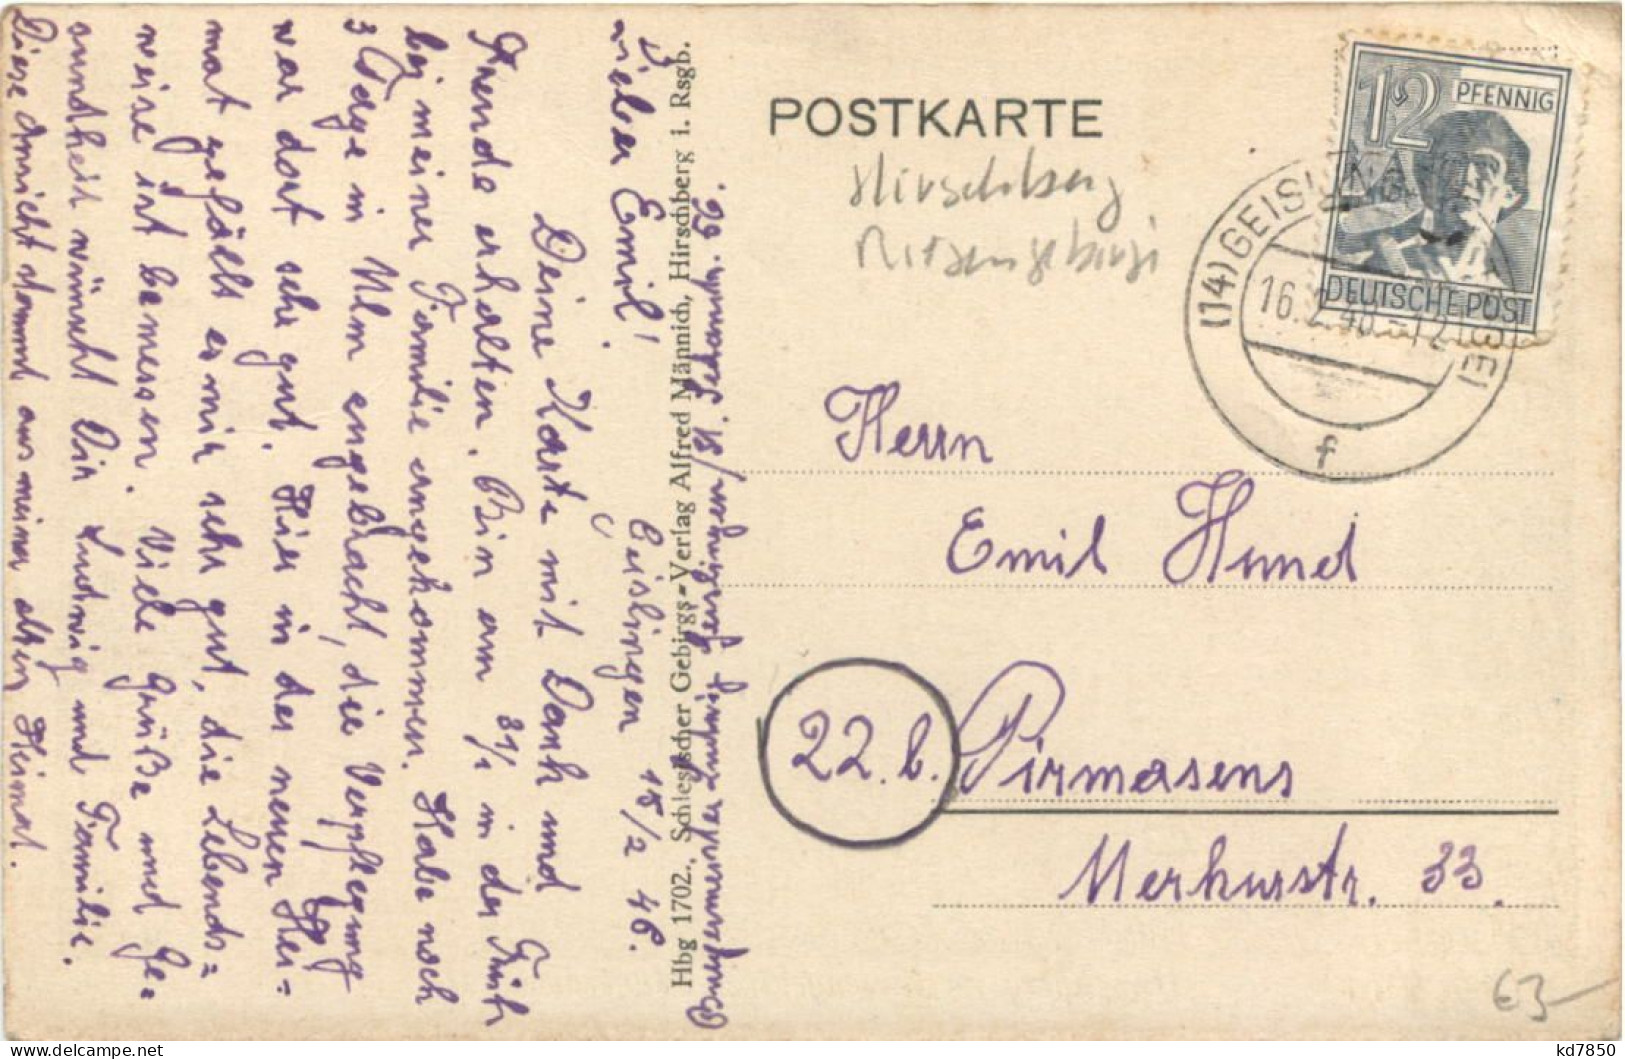 Eislingen 15/2 48.
Lieber Emil!
Deine Karte mit Dank und
Freude erhalten. Bin am 31/1 in der Früh
bei meiner Familie angekommen. Habe noch
3 Tage in Ulm zugebracht, die Verpflegung
war dort sehr gut. Hier in der neuen Hei-
mat gefällt es mir sehr gut, die Lebens-
weise ist bemessen. Viele Grüße und Ge-
sundheit wünscht Dir Ludwig und Familie.
Diese Ansicht stammt aus meiner alten Heimat.
Hbg 1702. Schlesischer Gebirgs-Verlag Alfred Männich, Hirschberg i. Rsgb.
Ludwig
POSTKARTE
Hirschberg
Riesengebirge
12 PFENNIG
DEUTSCHE POST
(14) GEISLINGEN (STEIGE)
16.2.48.-12
f
Herrn
Emil Hund
22.b. Pirmasens
Merkurstr. 33.
€3-
kd7850